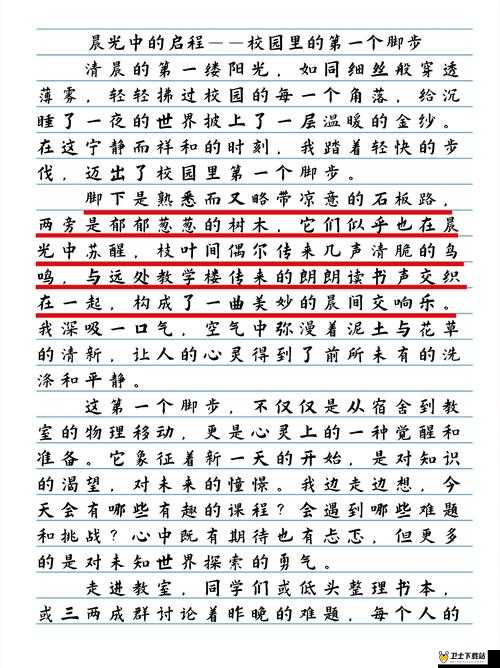 晨光中的启程——校园里的第一个脚步
清晨的第一缕阳光，如同细丝般穿透
薄雾，轻轻拂过校园的每一个角落，给沉
睡了一夜的世界披上了一层温暖的金纱。
在这宁静而祥和的时刻，我踏着轻快的步
伐，迈出了校园里第一个脚步。
脚下是熟悉而又略带凉意的石板路，
两旁是郁郁葱葱的树木，它们似乎也在晨
光中苏醒，枝叶间偶尔传来几声清脆的鸟
鸣，与远处教学楼传来的朗朗读书声交织
在一起，构成了一曲美妙的晨间交响乐。
我深吸一口气，空气中弥漫着泥土与花草
的清新，让人的心灵得到了前所未有的洗
涤和平静。
这第一个脚步，不仅仅是从宿舍到教
室的物理移动，更是心灵上的一种觉醒和
准备。它象征着新一天的开始，是对知识
的渴望，对未来的憧憬。我边走边想，今
天会有哪些有趣的课程？会遇到哪些难题
和挑战？心中既有期待也有忐忑，但更多
的是对未知世界探索的勇气。
走进教室，同学们或低头整理书本，
或三两成群讨论着昨晚的难题，每个人的
卫士下载站